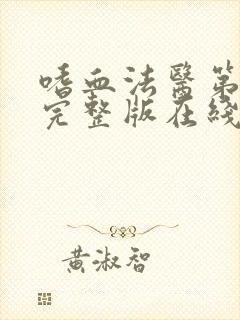 嗜血法醫第
完整版在綫
黃淑智